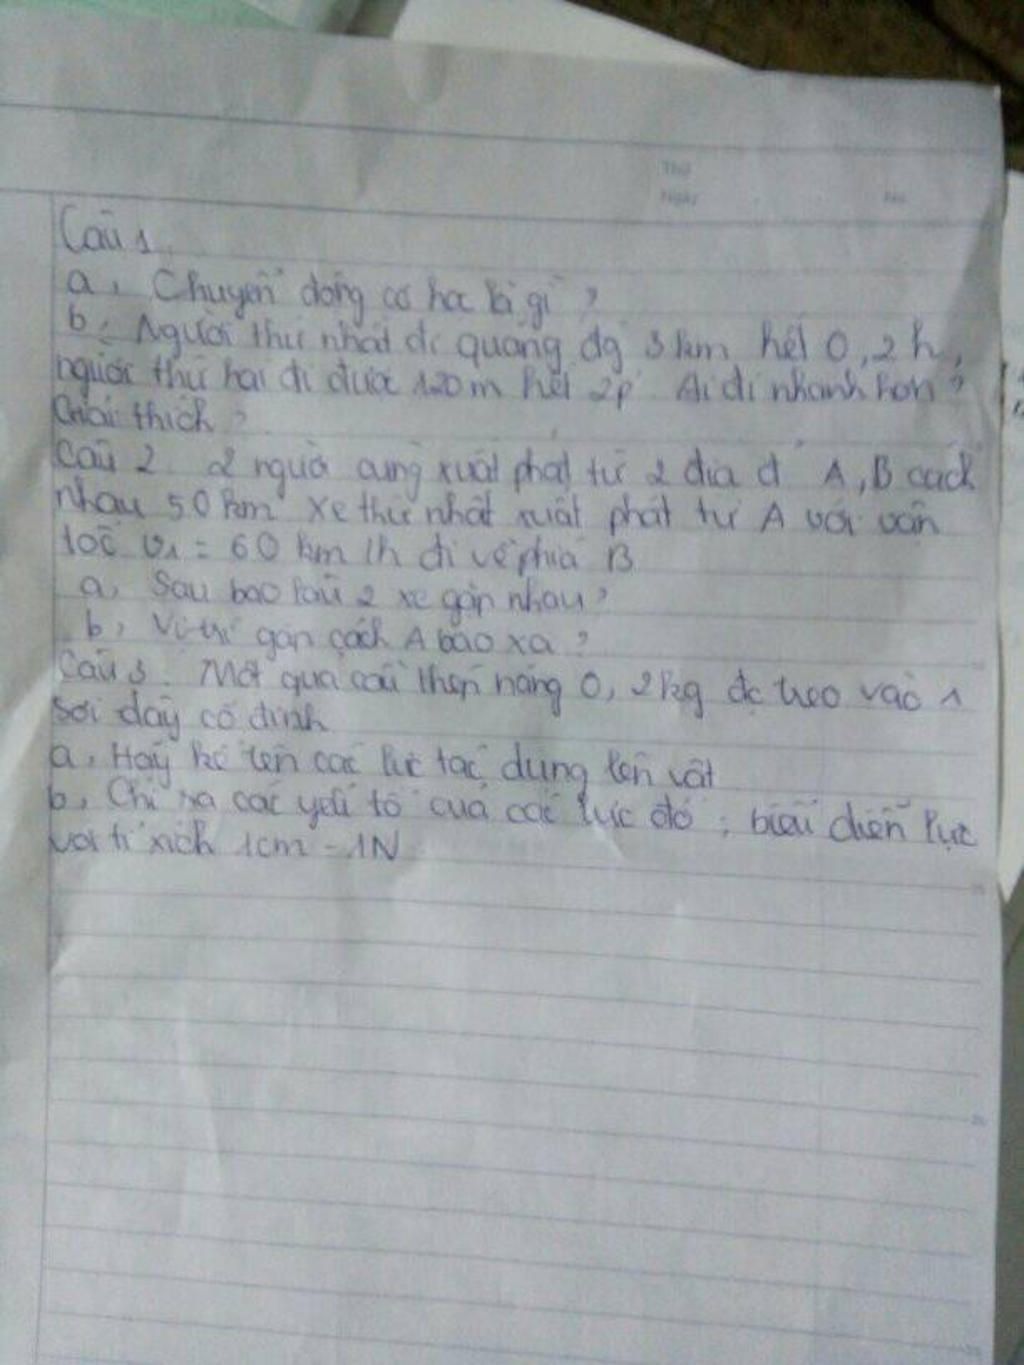 Thứ
Ngày
No.
Câu 1
a, Chuyển động cơ học là gì ?
b, Người thứ nhất đi quãng đg 3 km hết 0,2 h,
người thứ hai đi được 120 m hết 2p. Ai đi nhanh hơn ?
Giải thích ?
Câu 2. 2 người cùng xuất phát từ 2 địa đ' A, B cách
nhau 50 km Xe thứ nhất xuất phát từ A với vận
tốc v1 = 60 km /h đi về phía B
a, Sau bao lâu 2 xe gặp nhau ?
b, Vị trí gặp cách A bao xa ?
Câu 3. Một quả cầu thép nặng 0,2kg đc treo vào 1
sợi dây cố định
a, Hãy kể tên các lực tác dụng lên vật
b, Chỉ ra các yếu tố của các lực đó ; biểu diễn lực
với tỉ xích 1cm - 1N